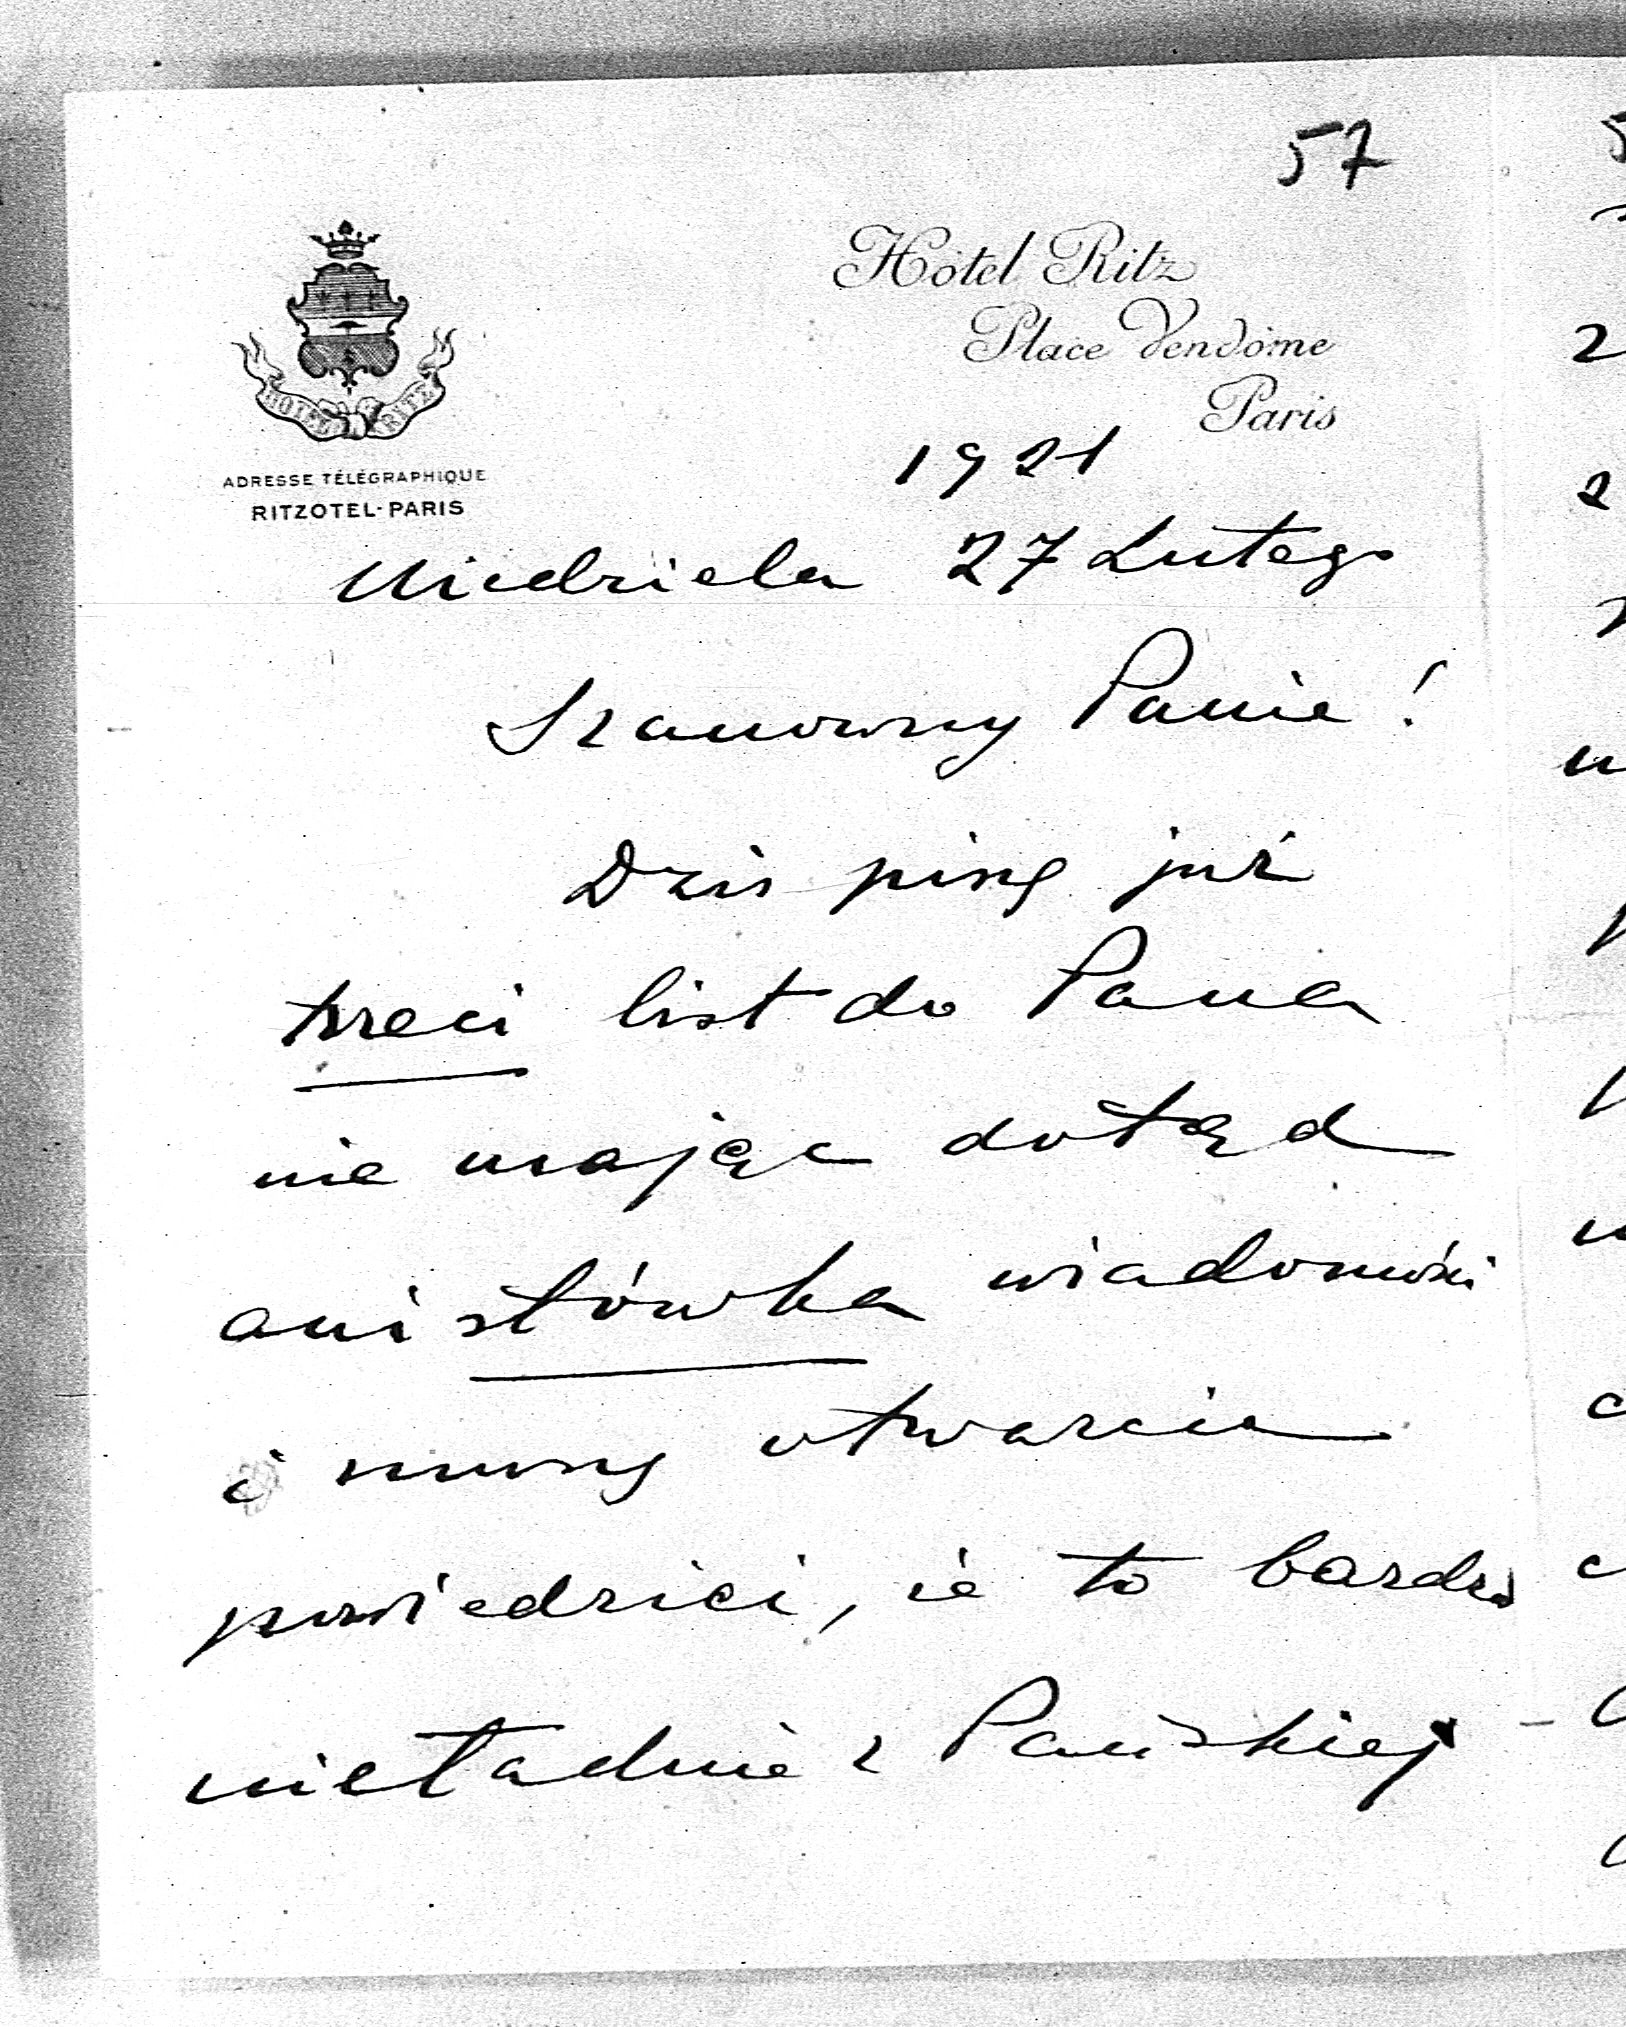 57
Hôtel Ritz
Place Vendôme
Paris
HOTEL RITZ
ADRESSE TÉLÉGRAPHIQUE
RITZOTEL-PARIS
1921
Niedziela 27 Lutego
Szanowny Panie!
Dziś piszę już
trzeci list do Pana
nie mając dotąd
ani słówka wiadomości
i muszę otwarcie
powiedzieć, że to bardzo
nieładnie z Pańskiej